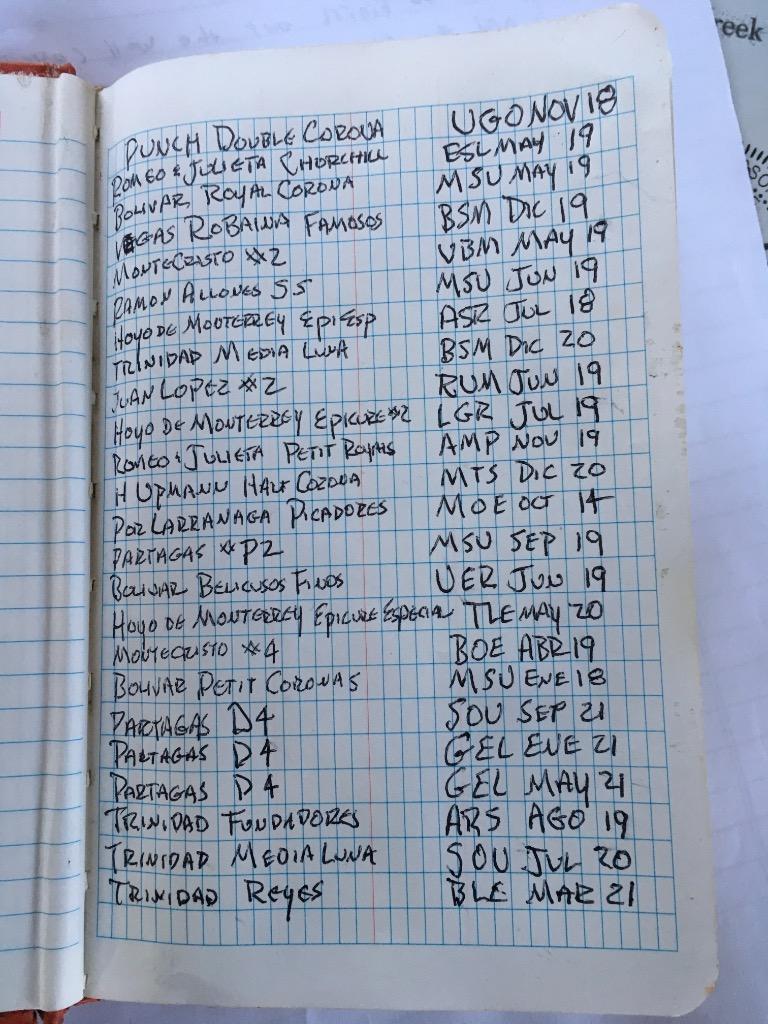 reek
PUNCH DOUBLE CORONA UGO NOV 18
ROMEO & JULIETA CHURCHILL ESL MAY 19
BOLIVAR ROYAL CORONA MSU MAY 19
VEGAS ROBAINA FAMOSOS BSM DIC 19
MONTECRISTO #2 UBM MAY 19
RAMON ALLONES SS MSU JUN 19
HOYO DE MONTERREY EPI ESP ASR JUL 18
TRINIDAD MEDIA LUNA BSM DIC 20
JUAN LOPEZ #2 RUM JUN 19
HOYO DE MONTERREY EPICURE #2 LGR JUL 19
ROMEO & JULIETA PETIT ROYALS AMP NOV 19
H UPMANN HALF CORONA MTS DIC 20
POR LARRANAGA PICADORES MOE OCT 14
PARTAGAS #P2 MSU SEP 19
BOLIVAR BELICUSOS FINOS UER JUN 19
HOYO DE MONTERREY EPICURE ESPECIAL TLE MAY 20
MONTECRISTO #4 BOE ABR 19
BOLIVAR PETIT CORONAS MSU ENE 18
PARTAGAS D4 SOU SEP 21
PARTAGAS D4 GEL ENE 21
PARTAGAS D4 GEL MAY 21
TRINIDAD FUNDADORES ARS AGO 19
TRINIDAD MEDIA LUNA SOU JUL 20
TRINIDAD REYES BLE MAR 21